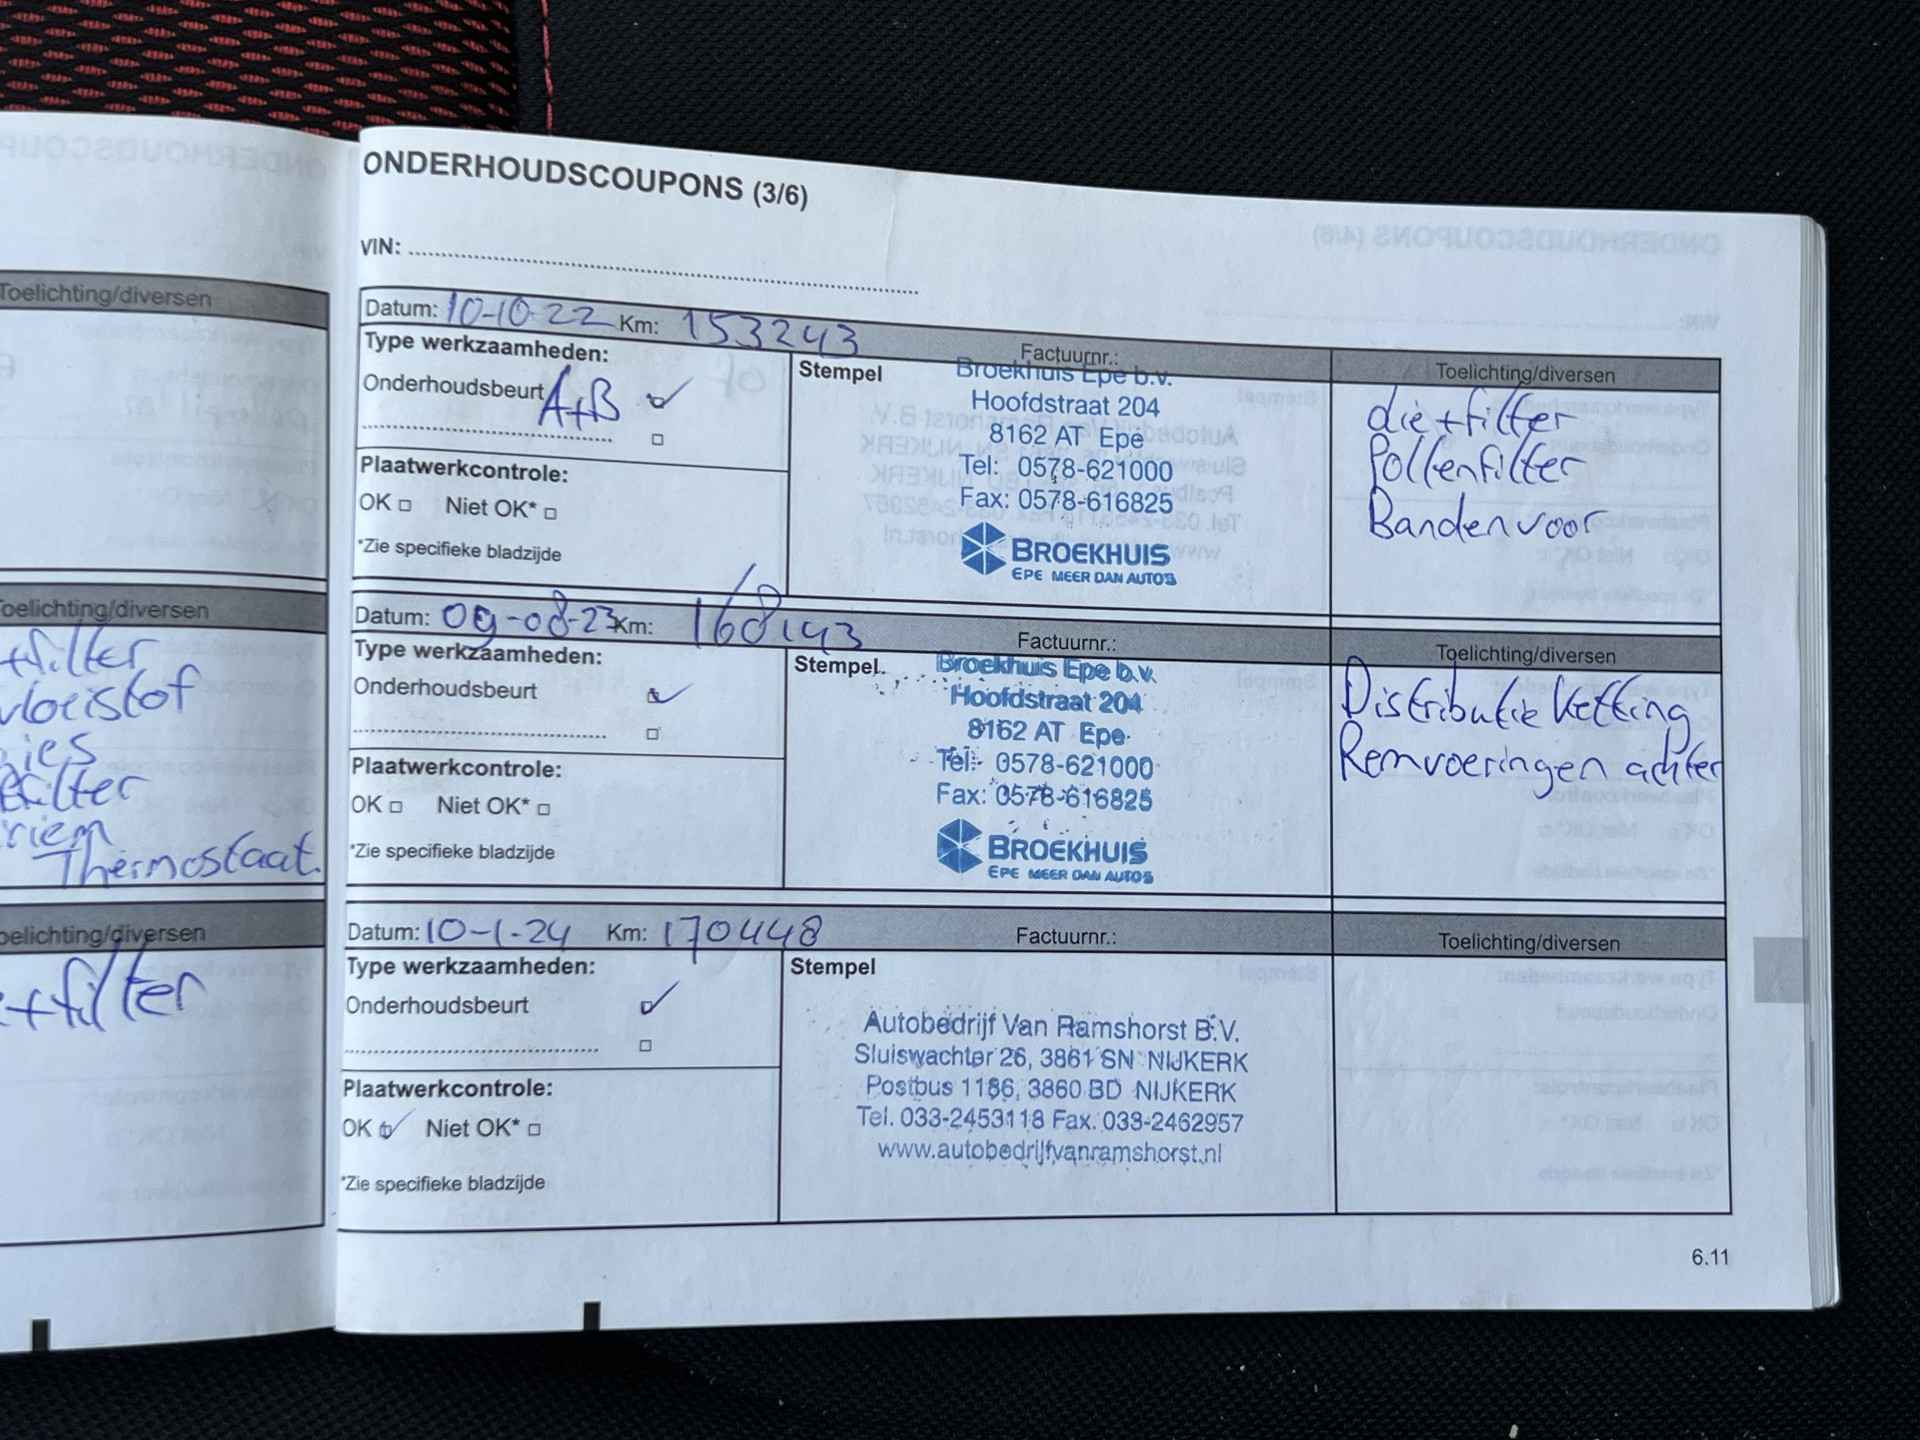 Toelichting/diversen
Toelichting/diversen
+filter
vloeistof
filter
riem
Thermostaat.
Toelichting/diversen
+filter
ONDERHOUDSCOUPONS (3/6)
VIN:
Datum: 10-10-22 Km: 153243
Factuurnr.:
Type werkzaamheden:
Onderhoudsbeurt A+B
Plaatwerkcontrole:
OK Niet OK*
*Zie specifieke bladzijde
Stempel
Broekhuis Epe b.v.
Hoofdstraat 204
8162 AT Epe
Tel: 0578-621000
Fax: 0578-616825
BROEKHUIS
EPE MEER DAN AUTO'S
Toelichting/diversen
olie+filter
Pollenfilter
Banden voor
Datum: 09-08-23 Km: 168143
Factuurnr.:
Type werkzaamheden:
Onderhoudsbeurt
Plaatwerkcontrole:
OK Niet OK*
*Zie specifieke bladzijde
Stempel
Broekhuis Epe b.v.
Hoofdstraat 204
8162 AT Epe
Tel: 0578-621000
Fax: 0578-616825
BROEKHUIS
EPE MEER DAN AUTO'S
Toelichting/diversen
Distributie ketting
Remvoeringen achter
Datum: 10-1-24 Km: 170448
Factuurnr.:
Type werkzaamheden:
Onderhoudsbeurt
Plaatwerkcontrole:
OK Niet OK*
*Zie specifieke bladzijde
Stempel
Autobedrijf Van Ramshorst B.V.
Sluiswachter 26, 3861 SN NIJKERK
Postbus 1186, 3860 BD NIJKERK
Tel. 033-2453118 Fax. 033-2462957
www.autobedrijfvanramshorst.nl
Toelichting/diversen
6.11